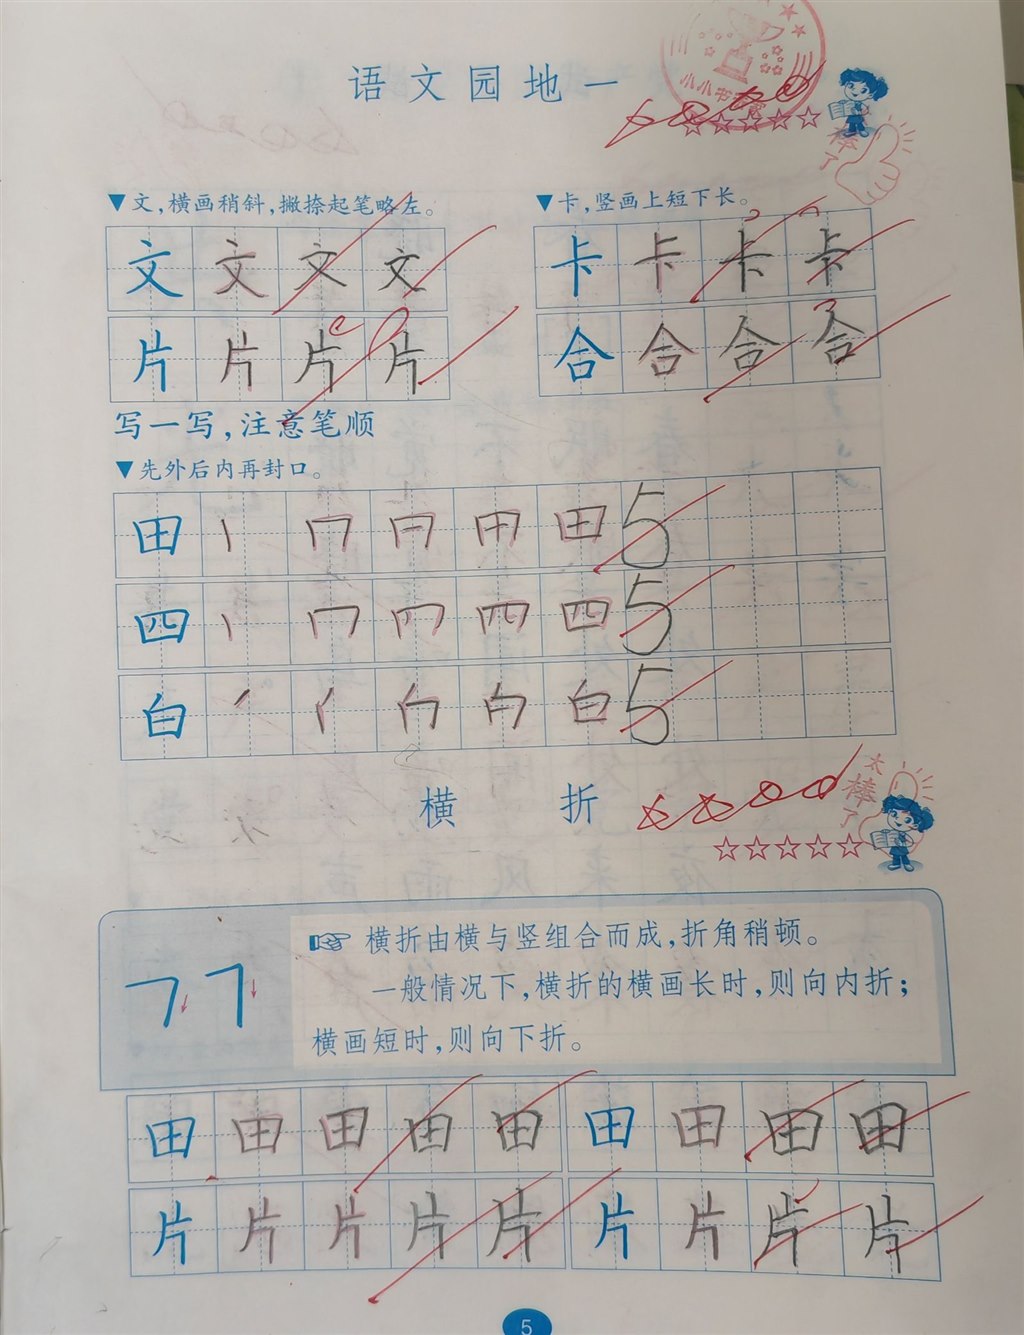 语文园地一
小小书
棒了
▼文，横画稍斜，撇捺起笔略左。
▼卡，竖画上短下长。
文 文 文 文
卡 卡 卡 卡
片 片 片 片
合 合 合 合
写一写，注意笔顺
▼先外后内再封口。
田 丨 冂 田 5
四 丨 冂 四 四 5
白 丿 白 5
横 折
太棒了
横折由横与竖组合而成，折角稍顿。
一般情况下，横折的横画长时，则向内折；
横画短时，则向下折。
田 田 田 田 田 田 田 田 田
片 片 片 片 片 片 片 片 片
5